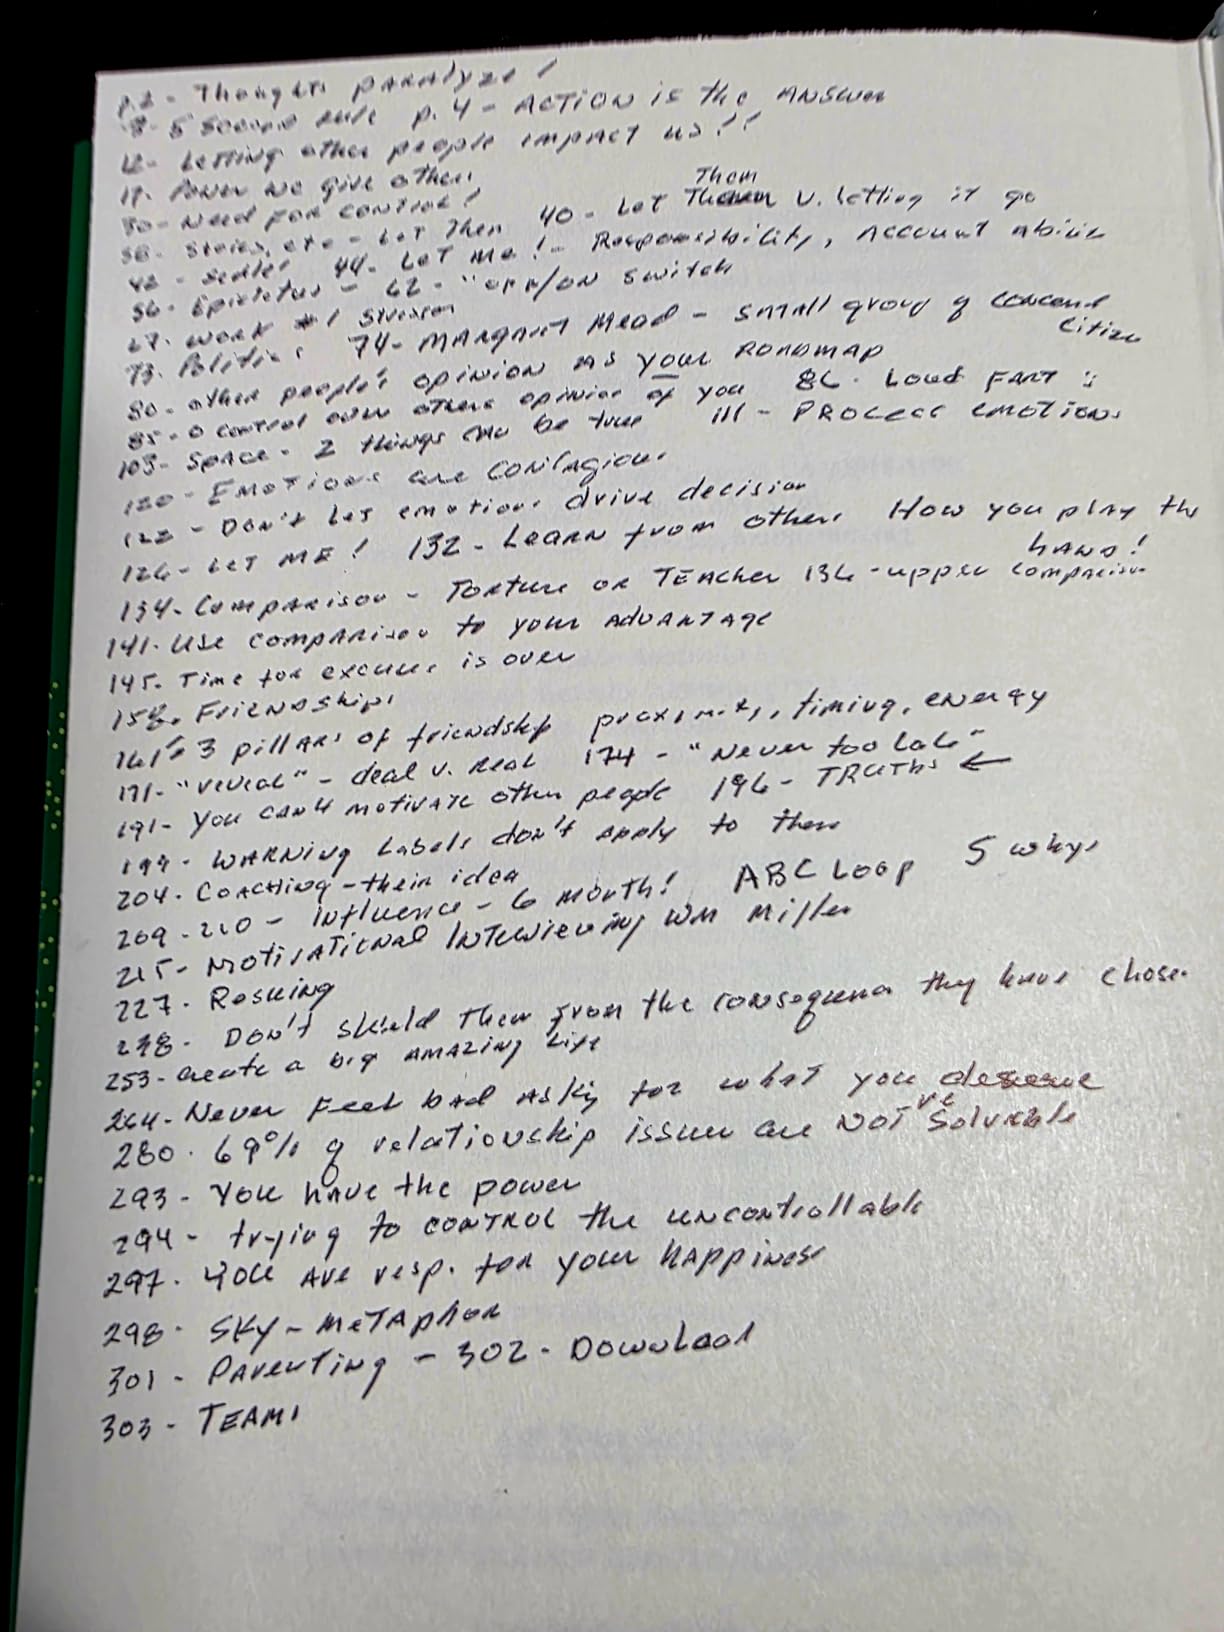 p.2 - Thoughts paralyze!
8- 5 Second rule p. 4 - ACTION is the ANSWER
12- Letting other people impact us!!
17- Power we give others
30- Need for control!
38- Stories, etc - Let Them 40- Let Them v. letting it go
42 - 44- Let me! - Responsibility, Account ability
56- Epictetus - 62 - "OFF/ON switch
67- Work #1 stressor
73- Politics 74- Margaret Mead - small group of citizens
80- other people's opinion as your ROADMAP
85- 0 control over others opinion of you 86- Loud FART :)
103- Space - 2 things can be true 111 - PROCESS EMOTIONS
120- EMOTIONS are contagious
122 - Don't let emotions drive decision
126- LET ME! 132- Learn from others How you play the hand!
134- Comparison - Torture or TEACHER 136 - upper comparison
141- Use comparison to your ADVANTAGE
145- Time for excuses is over
158- Friendships
161- 3 pillars of friendship proximity, timing, energy
171- "reveal" - deal v. real 174 - "Never too late"
191- you can't motivate other people 196- TRUTHS ←
199- WARNING Labels don't apply to them
204- COACHING - their idea
209-210 - Influence - 6 month! ABC Loop 5 whys
215- MOTIVATIONAL INTERVIEWING WM Miller
227- Rescuing
238- Don't shield them from the consequences they have chose.
253- create a big amazing life
264- Never Feel bad asking for what you deserve
280- 69% of relationship issues are NOT solvable
293- You have the power
294- trying to CONTROL the uncontrollable
297- YOU are resp. for your happiness
298- SKY - METAPHOR
301- Parenting - 302- Download
303- TEAM!